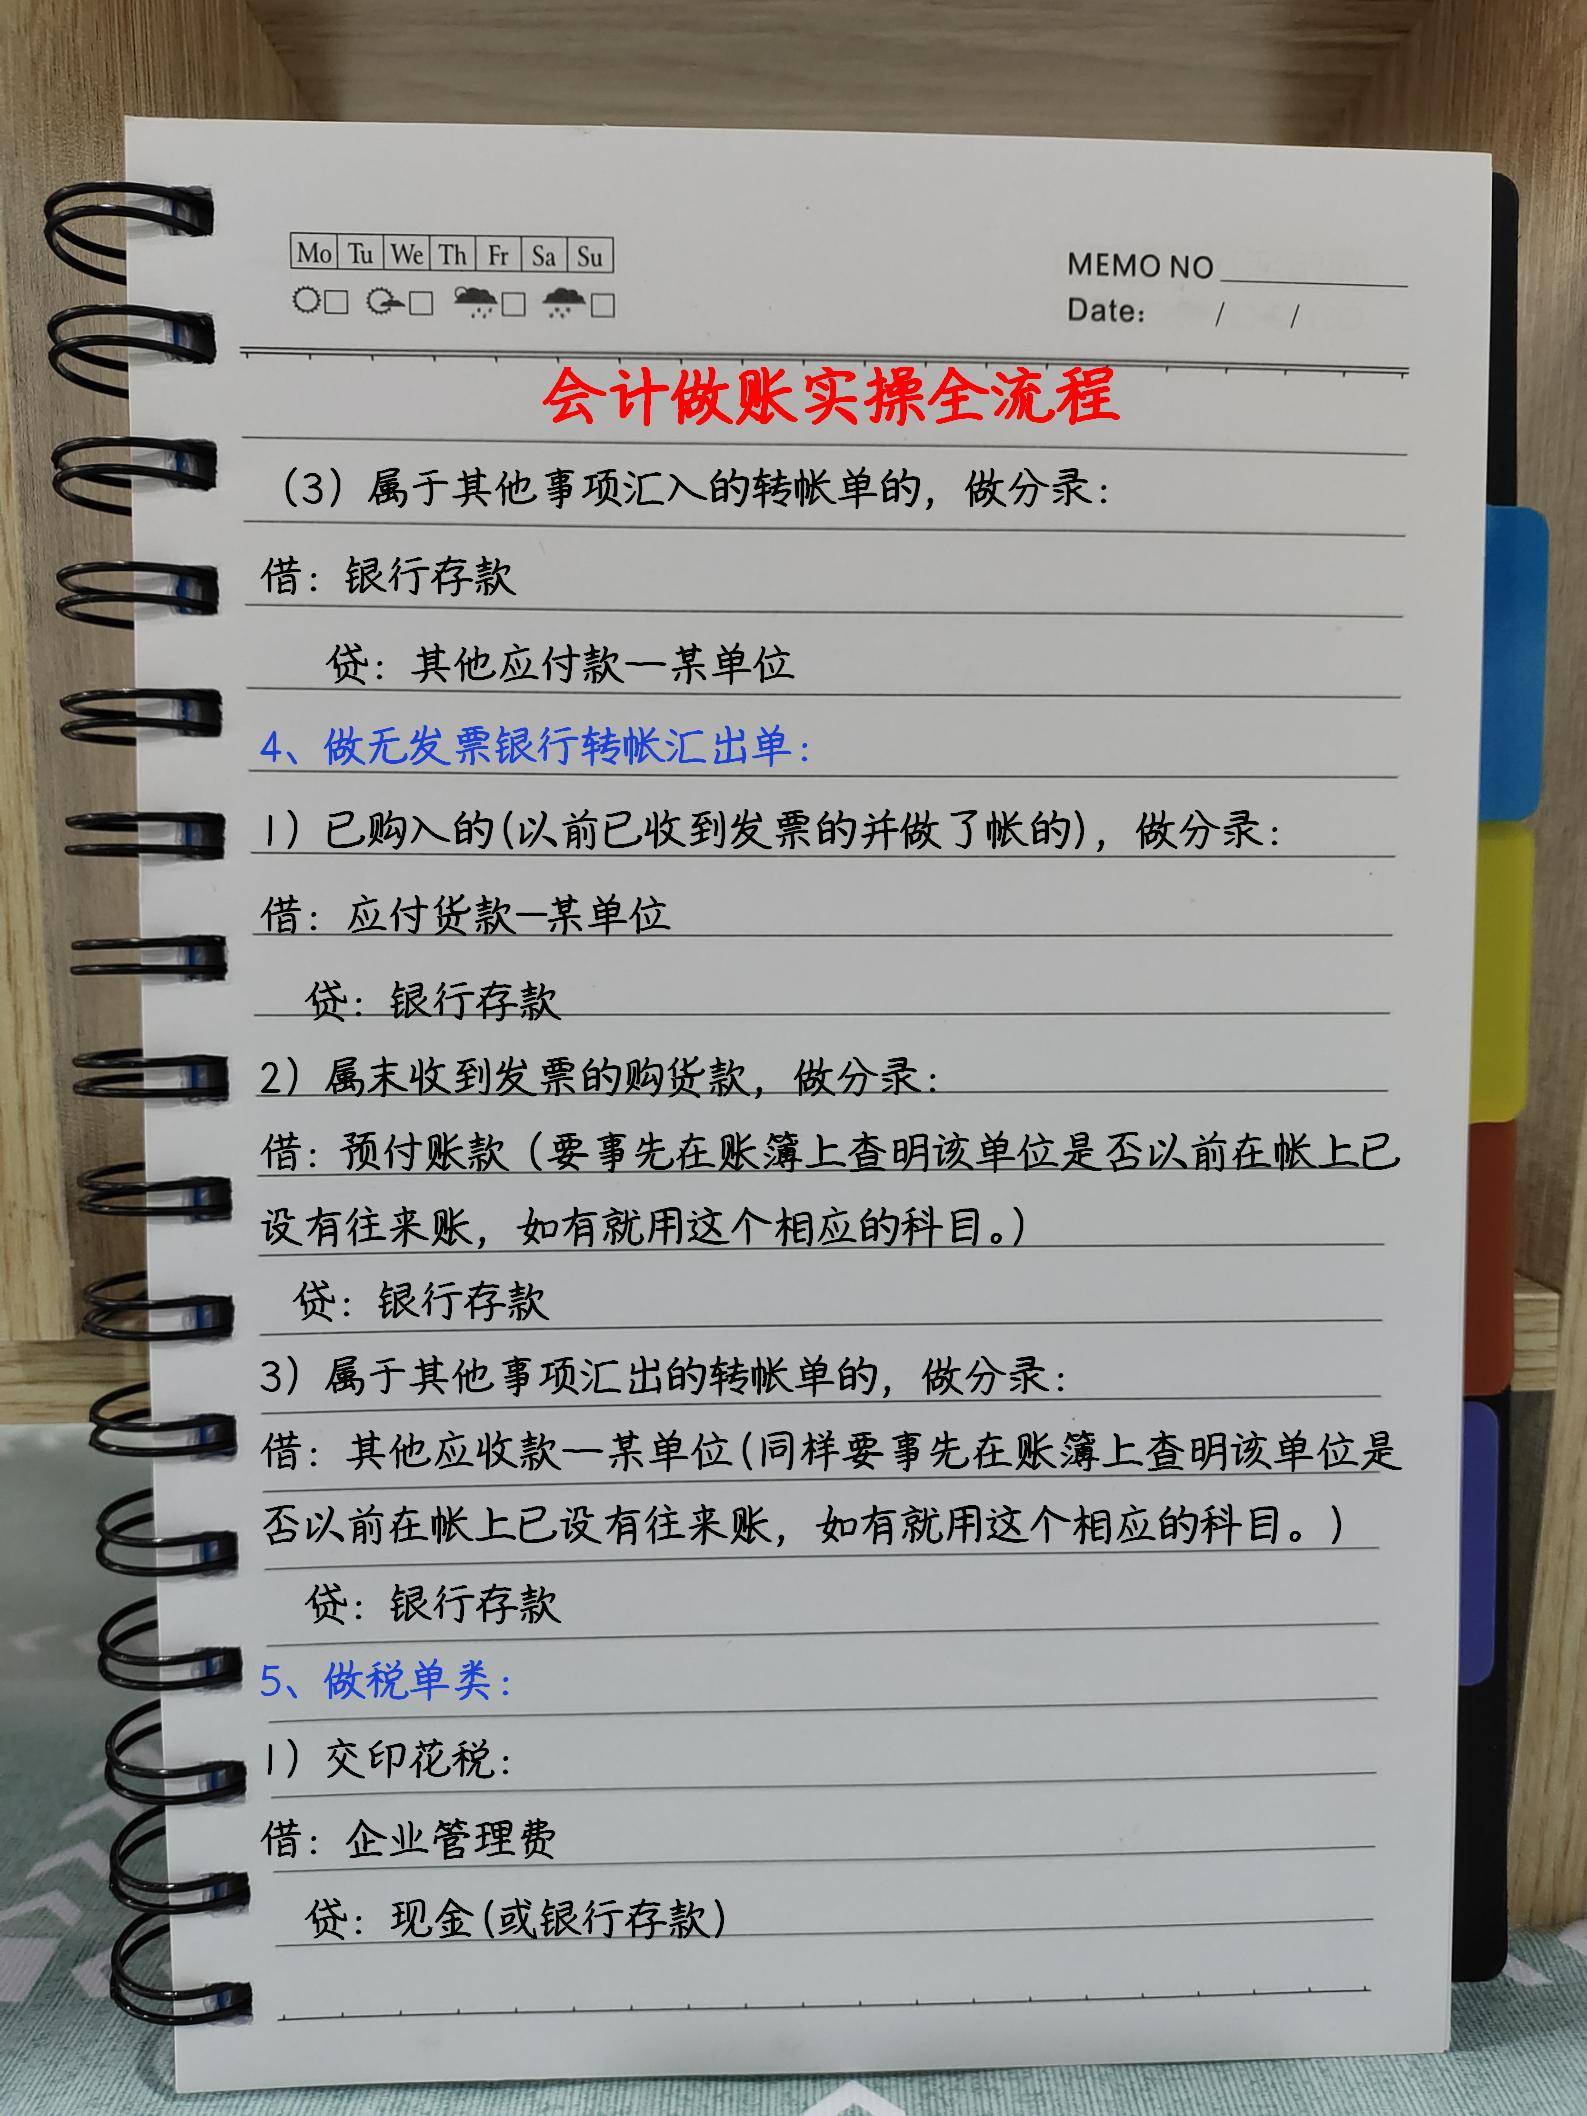 Mo Tu We Th Fr Sa Su
MEMO NO
Date: / /
会计做账实操全流程
（3）属于其他事项汇入的转帐单的，做分录：
借：银行存款
贷：其他应付款—某单位
4、做无发票银行转帐汇出单：
1）已购入的(以前已收到发票的并做了帐的)，做分录：
借：应付货款—某单位
贷：银行存款
2）属末收到发票的购货款，做分录：
借：预付账款（要事先在账簿上查明该单位是否以前在帐上已
设有往来账，如有就用这个相应的科目。）
贷：银行存款
3）属于其他事项汇出的转帐单的，做分录：
借：其他应收款—某单位(同样要事先在账簿上查明该单位是
否以前在帐上已设有往来账，如有就用这个相应的科目。）
贷：银行存款
5、做税单类：
1）交印花税：
借：企业管理费
贷：现金(或银行存款)